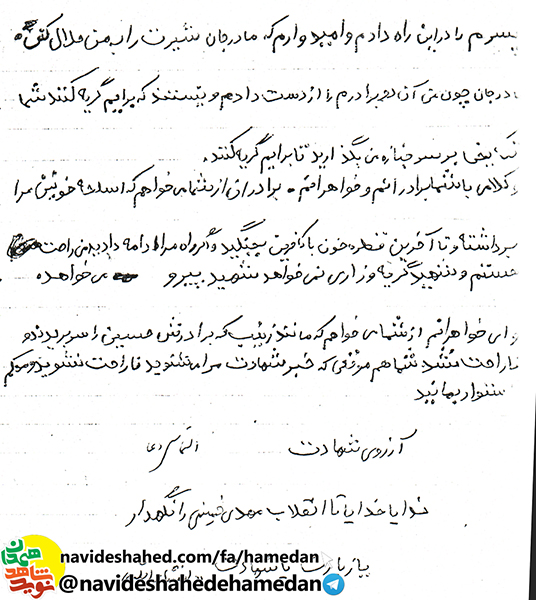 پسرم را در این راه دادم و امیدوارم که مادرجان شیرت را به من حلال کنی
مادرجان چون من آن دو برادرم را از دست دادم و نیستند که برایم گریه کنند شما
بر سر جنازه من بگذارید تا برایم گریه کنند.
و کلامی با شما برادرانم و خواهرانم. برادران از شما می‌خواهم که اسلحه خونین مرا
برداشته و تا آخرین قطره خون با کافرین بجنگید و اگر راه مرا ادامه دادید من راحت
هستم و شهید گریه و زاری نمی خواهد شهید پیرو می خواهد
و ای خواهرانم از شما می خواهم که مانند زینب که برادرش حسین را سر بریدند و
ناراحت نشد شما هم موقعی که خبر شهادت مرا می‌شنوید ناراحت نشوید و محکم
استوار بمانید
آرزوی شهادت التماس دعا
خدایا خدایا تا انقلاب مهدی خمینی را نگهدار
یا زیارت یا شهادت
navideshahed.com/fa/hamedan
@navideshahedehamedan
نوید شاهد همدان